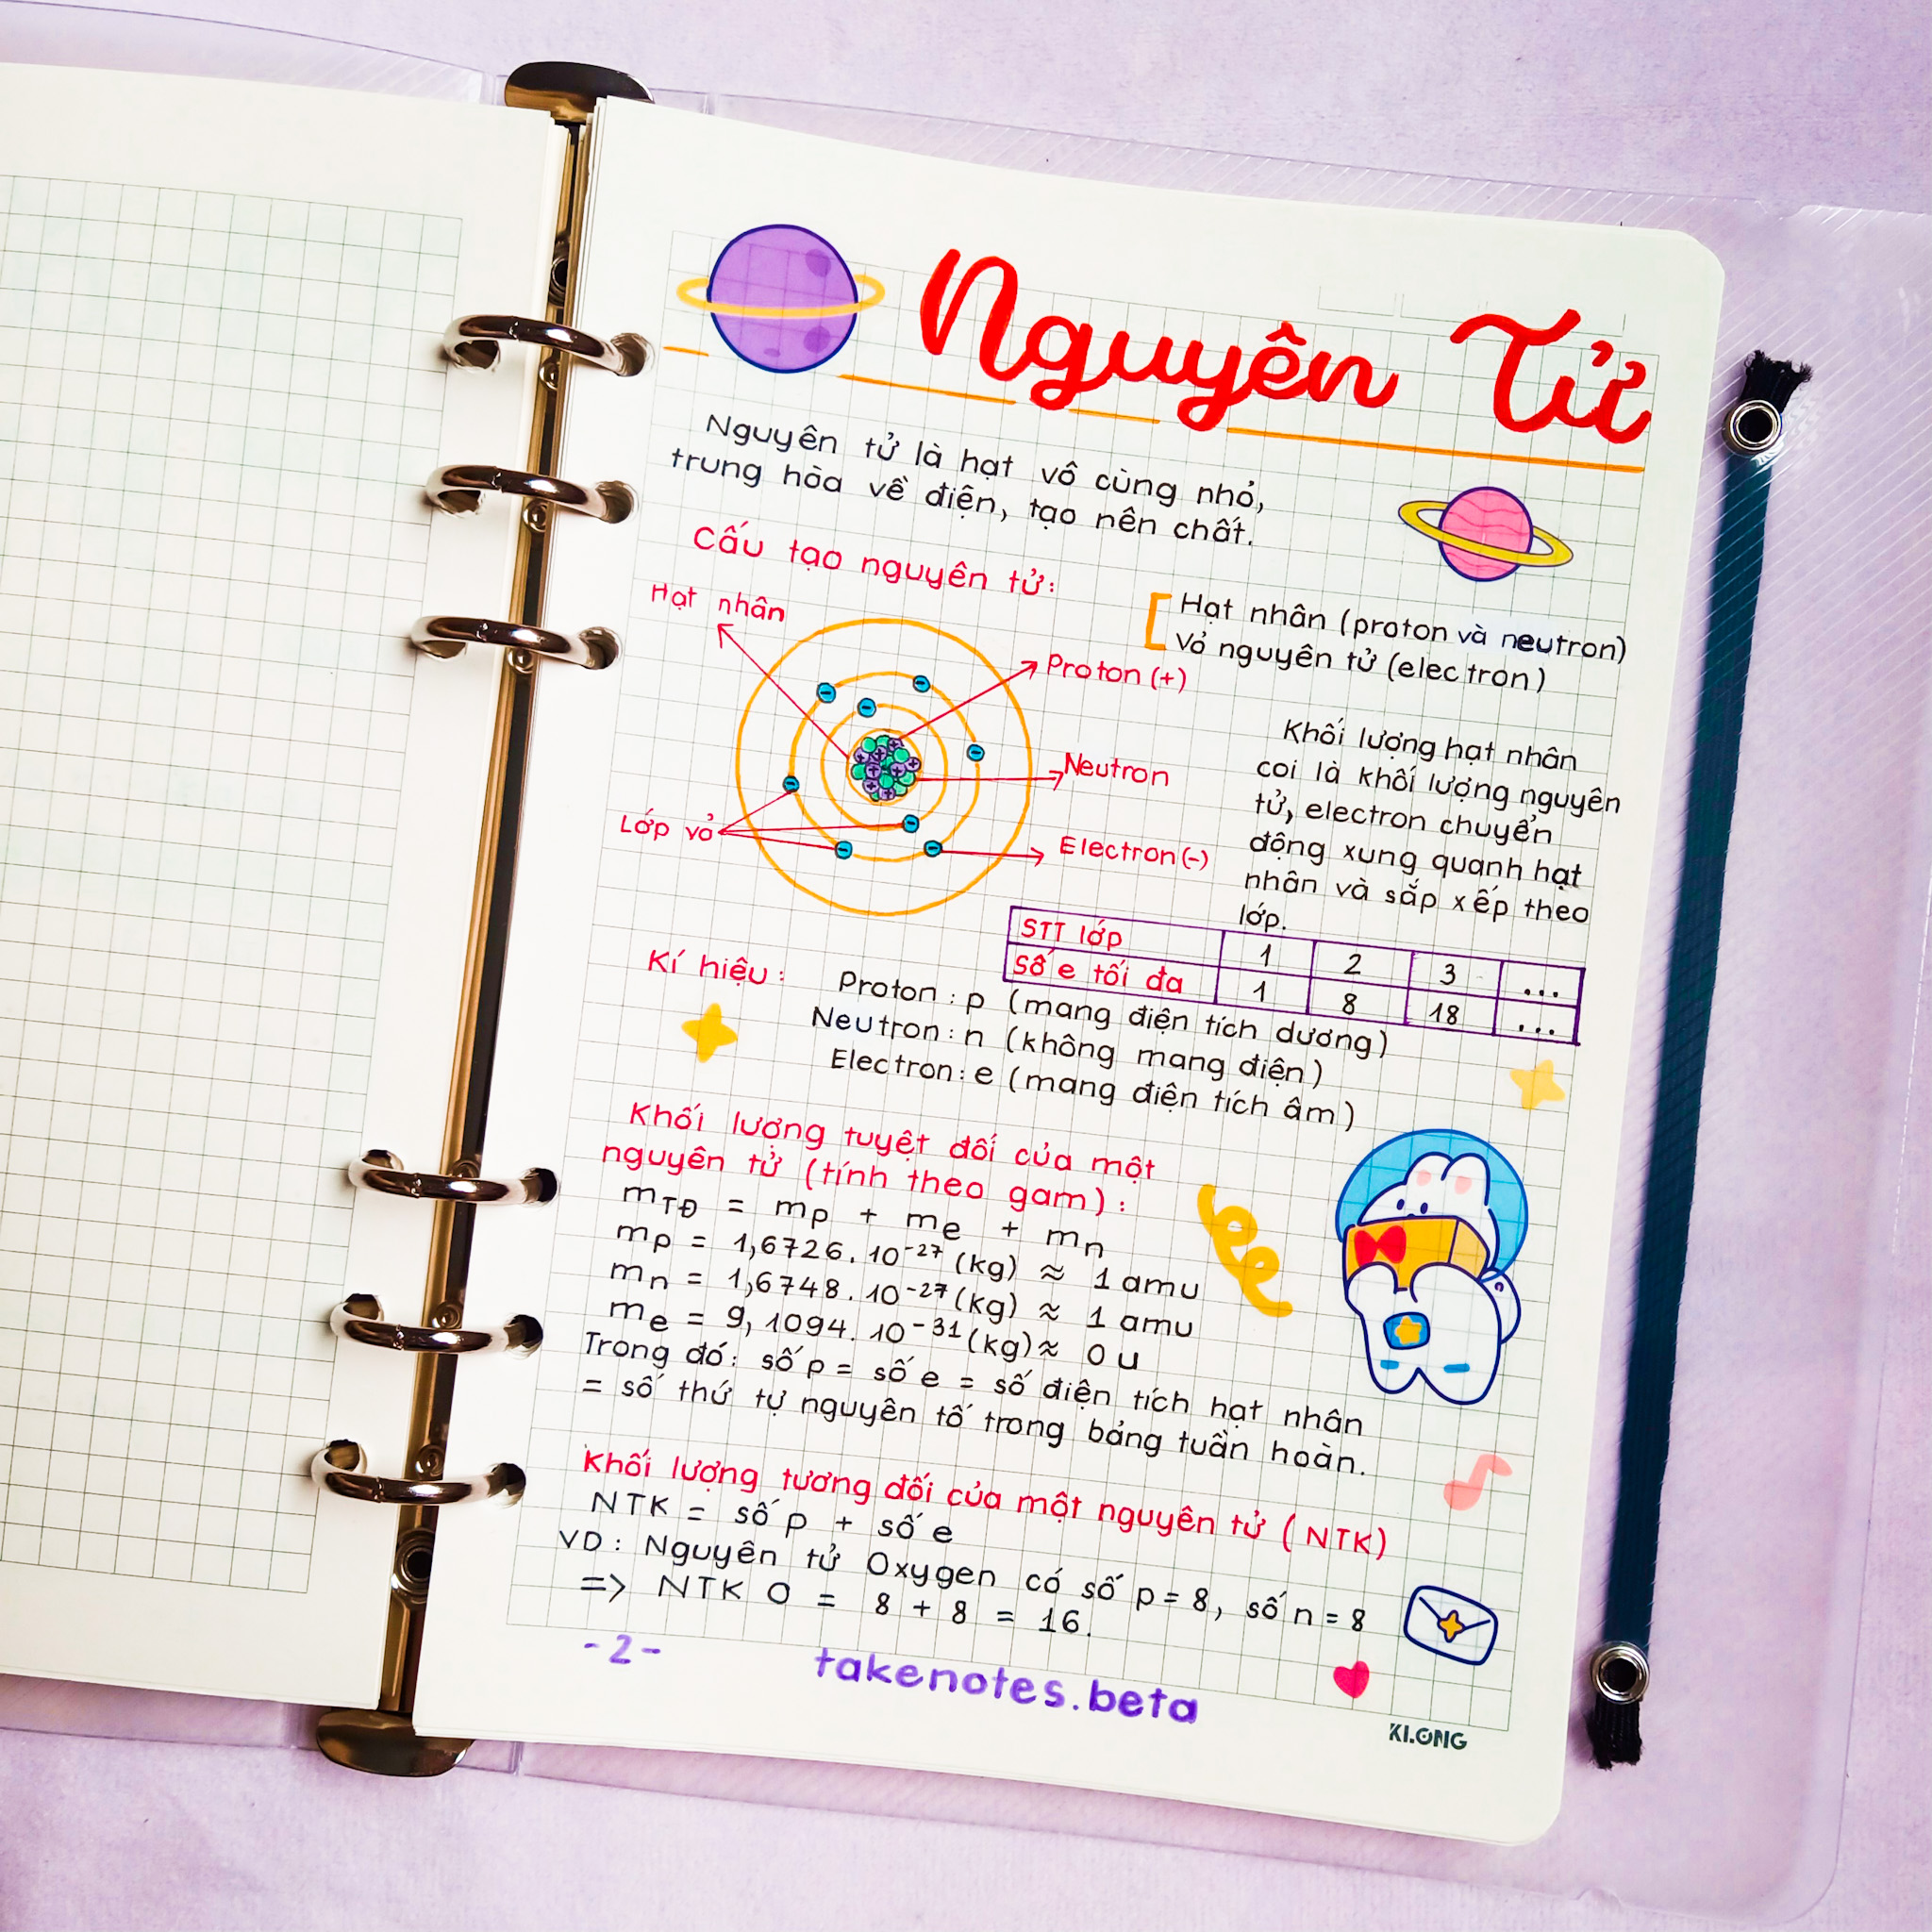 Nguyên Tử
Nguyên tử là hạt vô cùng nhỏ,
trung hòa về điện, tạo nên chất.
Cấu tạo nguyên tử:
Hạt nhân (proton và neutron)
Vỏ nguyên tử (electron)
Hạt nhân
Proton (+)
Neutron
Lớp vỏ
Electron (-)
Khối lượng hạt nhân
coi là khối lượng nguyên
tử, electron chuyển
động xung quanh hạt
nhân và sắp xếp theo
lớp.
STT lớp 1 2 3 ...
Số e tối đa 1 8 18 ...
Kí hiệu: Proton: p (mang điện tích dương)
Neutron: n (không mang điện)
Electron: e (mang điện tích âm)
Khối lượng tuyệt đối của một
nguyên tử (tính theo gam):
mTĐ = mp + me + mn
mp = 1,6726.10⁻²⁷ (kg) ≈ 1 amu
mn = 1,6748.10⁻²⁷ (kg) ≈ 1 amu
me = 9,1094.10⁻³¹ (kg) ≈ 0 u
Trong đó: số p = số e = số điện tích hạt nhân
= số thứ tự nguyên tố trong bảng tuần hoàn.
Khối lượng tương đối của một nguyên tử (NTK)
NTK = số p + số e
VD: Nguyên tử Oxygen có số p = 8, số n = 8
=> NTK O = 8 + 8 = 16.
-2-
takenotes.beta
KLONG